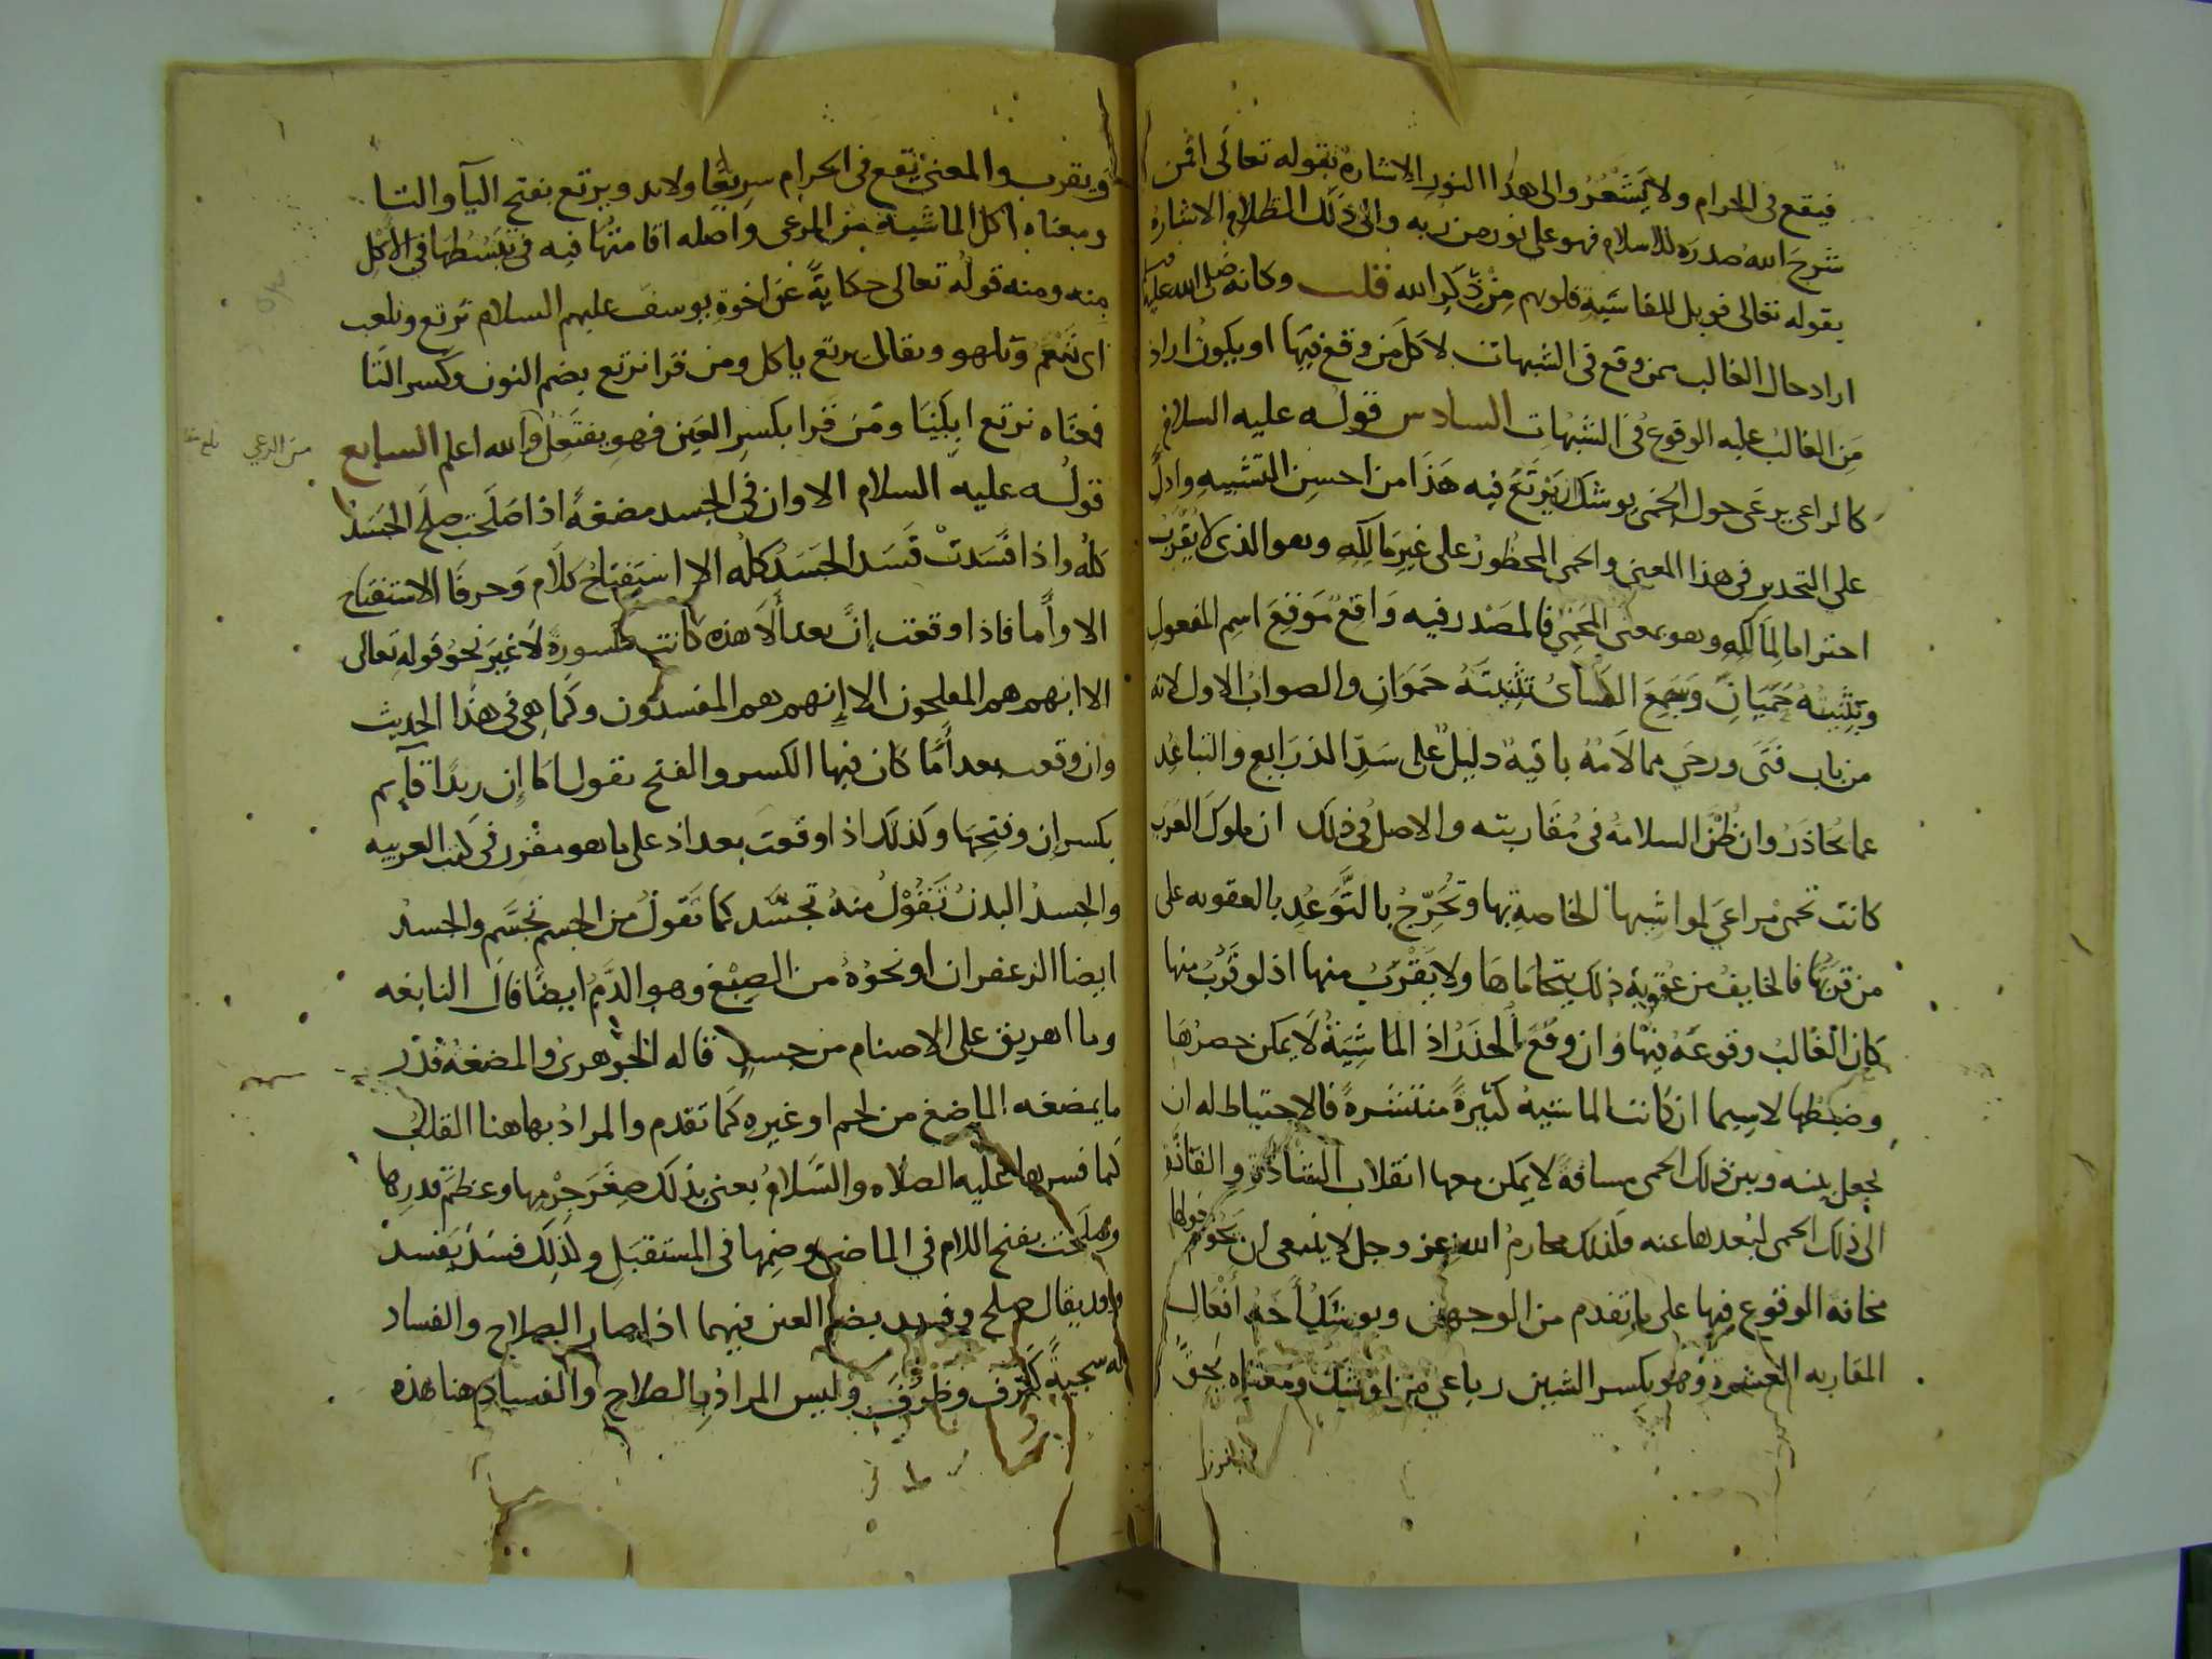 فيقع في الحرام ولا يَشْعُرُ والى هذا النور الاشارة بقوله تعالى افمن
شرحَ الله صدرَه للاسلام فهو على نور من ربه والى ذلك الظلام الاشارة
بقوله تعالى فويل للقاسَية قلوبهم مِنْ ذِكرِ الله قلت وكانه صَلى الله عليه
اراد حال الغالب ممن وقع في الشبهات لا كل مَن وقع فيها او يكون اراد
مَن الغالبُ عليه الوقوع في الشبهات السادس قوله عليه السلام
كالراعي يرعَى حول الحِمَى يوشك ان يَرْتَعَ فيه هَذَا من احسن التشبيهِ وادلِّ
على التحدير في هذا المعنى والحمى المحظورُ على غيرِ مَالِكِهِ وهو الذي لا يُقْرَبُ
احتراما لِمَالِكِهِ وهو بمعنى المَحْمِيِّ فالمصْدر فيه وَاقعٌ مَوقِعَ اسم المفعولِ
وتثنِيتُهُ حِمَيَانِ وَسَمِعَ الكسائ تثنيتَهُ حَمَوَانِ والصوابُ الاول لانه
من باب فَتَى ورحَي مما لامُهُ بائيةٌ دليلٌ على سَدِّ الذرَايع والتباعُد
عما يُحَاذَرُ وان ظُنَّ السلامةُ في مُقَاربته والاصل في ذلك ان ملوكَ العَرَبِ
كانت تحمى مراعيَ لمواشِيها الخاصة بها وتُحَرِّجُ بالتَّوَعُّدِ بالعقوبه على
من قَرَبَهَا فالخايفُ من عُقوبة ذلك يتحَامَاهَا ولا يَقْرُبُ منها اذ لو قَرُبَ منها
كان الغالبُ وقوعَهُ فيها وَان وقعَ الحَذَرُ اذ الماشِيَةُ لا يمكن حصرُهَا
وضبطُها لاسيما ان كانت الماشيةُ كثيرةً منتشرةً فالاحتياط له ان
يجعل بينه وبين ذلك الحمى مسافةً لا يمكن معها انقلاب الشاذة والفاذة
الى ذلك الحمى لبُعدها عنه فلذلك محارمُ اللهِ عز وجل لا ينبغي ان يحُومَ حولها
مخافةَ الوقوع فيها على ما تقدم من الوجهين ويوشكُ احدُ افعال
المقاربه العشرة وهو بكسر الشين رباعي من اوشك ومعناه يَحِقُّ
ويقرب والمعنى يقع في الحرام سريعًا ولابد ويرتع بفتح اليآ والتا
ومعناه اكل الماشية من المرعى واصله اقامتها فيه في تبَسُّطِها في الاكل
منه ومنه قوله تعالى حكايةً عَن اخوة يوسف عليهم السلام نرتع ونلعب
اى نَنْعَم ونلهو ويقال يرتع ياكل ومن قرا نرتع بضم النون وكسر التا
فمعناه نرتع اِبِلَنَا ومَن قَرا بكسر العَين فهو يفتَعِل والله اعلم السابع
من الرعي
قولُه عليه السلام الا وان في الجسد مضغةً اذا صَلَحَت صلحَ الجَسَدُ
كله واذا فَسَدَتْ فَسَدَ الجَسَدُ كله الا استفتاحُ كلام وحرفَا الاستفتاح
الا وأما فاذا وقعت إنَّ بعد ألَا هذه كانت مكسورةً لا غيرَ نحو قولِهِ تعالى
الا انهم هم المفلحون الا إنهم هم المفسدون وكما هي في هذا الحديث
وان وقعت بعد أَمَا كان فيها الكسر والفتح تقول اما إن زيدًا قآيم
بكسر إن وفتحِهَا وكذلك اذا وقعت بعد اذ على ما هو مقرر في كتب العربيه
والجسدُ البدنُ تَقُوْلُ منهُ تجسَّد كما تقولُ من الجسم تجسَّم والجسد
ايضا الزعفران او نحوُهُ من الصِبْغ وهو الدَّمُ ايضًا قال النابغه
وما اهريق على الاصنام من جسد قاله الجوهريُّ والمضغةُ قَدْر
ما يمضغه الماضغ من لحم او غيره كما تقدم والمرادُ بها هنا القلبُ
كما فسرها عليه الصلاه والسَّلامُ يعنى بذلك صِغَرَ جِرْمِها وعظمَ قدرها
وصَلَحَت بفتح اللام في الماضى وضمها في المستقبل وكذلك فسَدَ يَفسدُ
وقد يقال صلح وفسد بضم العين فيهما اذا صار الصلاح والفساد
له سجيةً كَشَرُفَ وظرُفَ وليس المرادُ بالصلاح والفساد هنا هذه